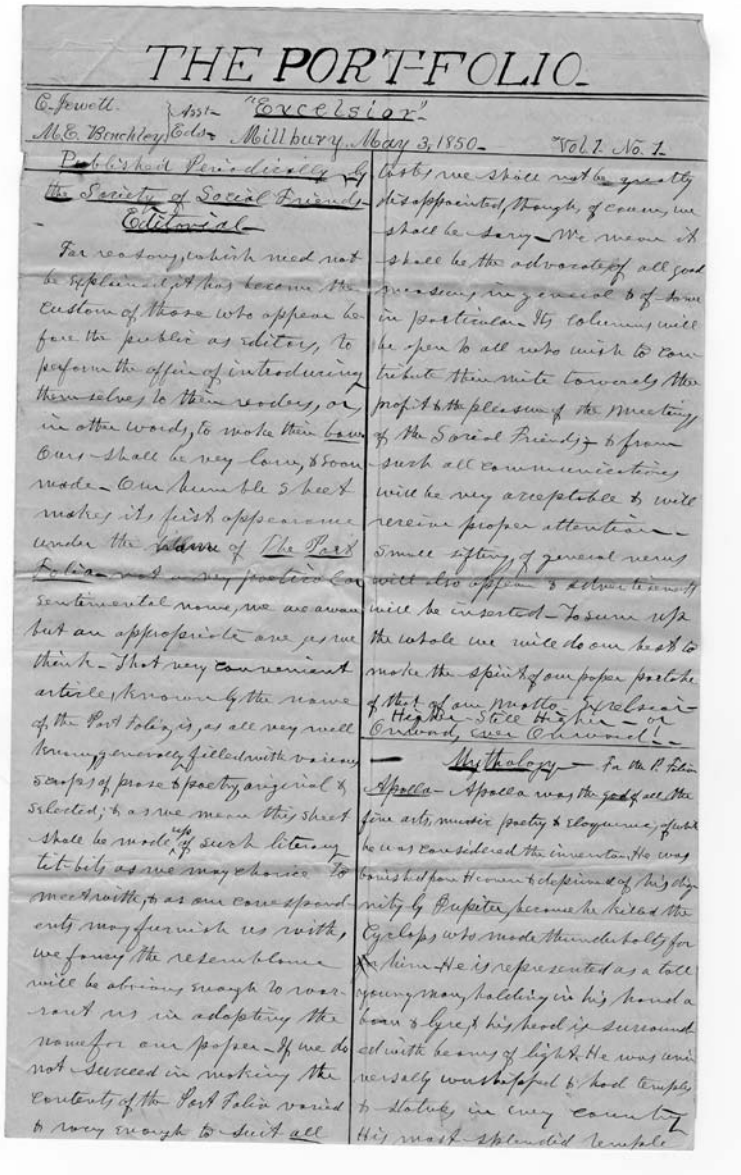 THE PORT-FOLIO.
C. Jewett.
M.E. Benchley
Asst-
Eds-
"Excelsior"-
Millbury May 3, 1850-
Vol 1. No. 1-
Published Periodically by
the Society of Social Friends-
Editorial-
For reasons, which need not
be explained, it has become the
custom of those who appear be
fore the public as editors, to
perform the office of introducing
themselves to their readers, or,
in other words, to make their bow.
Ours shall be very low, & soon
made- Our humble sheet
makes its first appearance
under the name of The Port
Folio- not a very poetical or
sentimental name, we are aware
but an appropriate one, as we
think- That very convenient
article, known by the name
of the Port Folio, is, as all very well
know, generally filled with various
scraps of prose & poetry, original &
selected; & as we mean this sheet
shall be made up of such literary
tit-bits as we may chance to
meet with, & as our correspond-
ents may furnish us with,
we fancy the resemblance
will be obvious enough to war-
rant us in adopting the
name for our paper- If we do
not succeed in making the
contents of the Port Folio varied
& racy enough to suit all
tastes we shall not be greatly
disappointed, though, of course, we
shall be sorry- We mean it
shall be the advocate of all good
measures in general & of some
in particular- Its columns will
be open to all who wish to con-
tribute their mite towards the
profit & the pleasure of the meetings
of the Social Friends; & from
such all communications
will be very acceptable & will
receive proper attention-
Small siftings of general news
will also appear & advertisements
will be inserted- To sum up
the whole we will do our best to
make the spirit of our paper partake
of that of our motto- Excelsior-
Higher- Still Higher- or
Onward, ever Onward!-
Mythology- For the P. Folio
Apollo- Apollo was the god of all the
fine arts, music poetry & eloquence, of which
he was considered the inventor. He was
banished from Heaven & deprived of his dig
nity by Jupiter, because he killed the
Cyclops who made thunderbolts for
him- He is represented as a tall
young man, holding in his hand a
bow & lyre, & his head is surround
ed with beams of light. He was uni
versally worshipped & had temples
& statues in every country
His most splendid temple